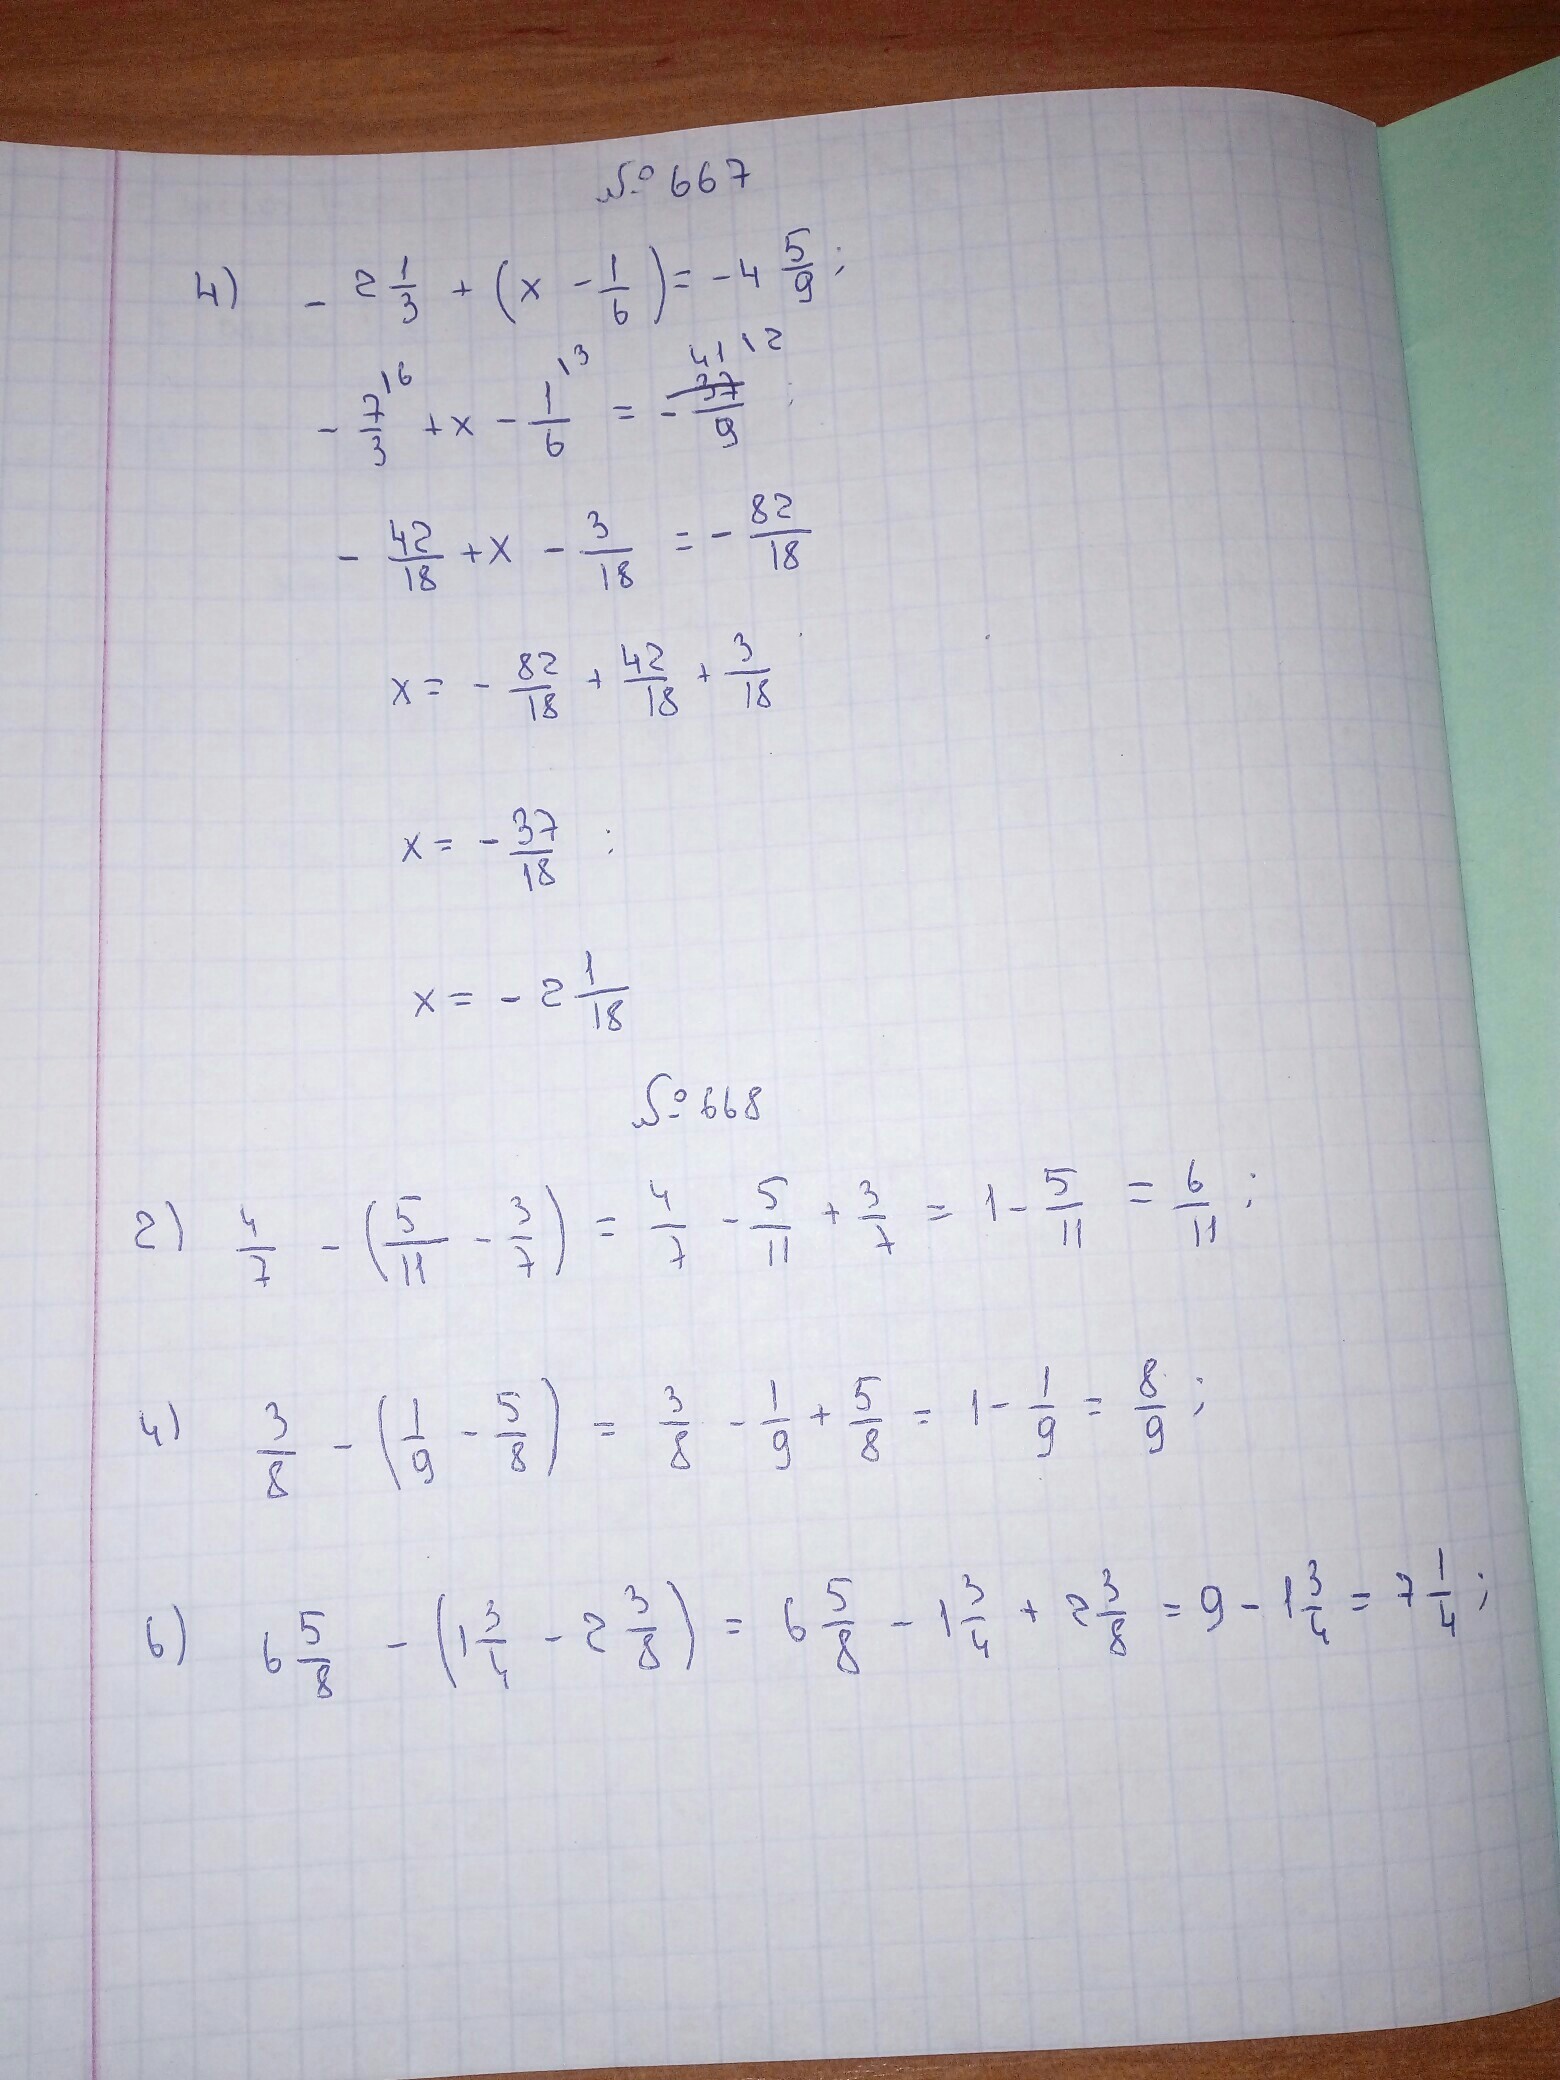 № 667
4) - 2 1/3 + (x - 1/6) = -4 5/9;
- 7/3 \6 + x - 1/6 \3 = - 41/9 \2 ;
- 42/18 + x - 3/18 = - 82/18
x = - 82/18 + 42/18 + 3/18
x = - 37/18 ;
x = - 2 1/18
№ 668
2) 4/7 - (5/11 - 3/7) = 4/7 - 5/11 + 3/7 = 1 - 5/11 = 6/11;
4) 3/8 - (1/9 - 5/8) = 3/8 - 1/9 + 5/8 = 1 - 1/9 = 8/9;
6) 6 5/8 - (1 3/4 - 2 3/8) = 6 5/8 - 1 3/4 + 2 3/8 = 9 - 1 3/4 = 7 1/4;